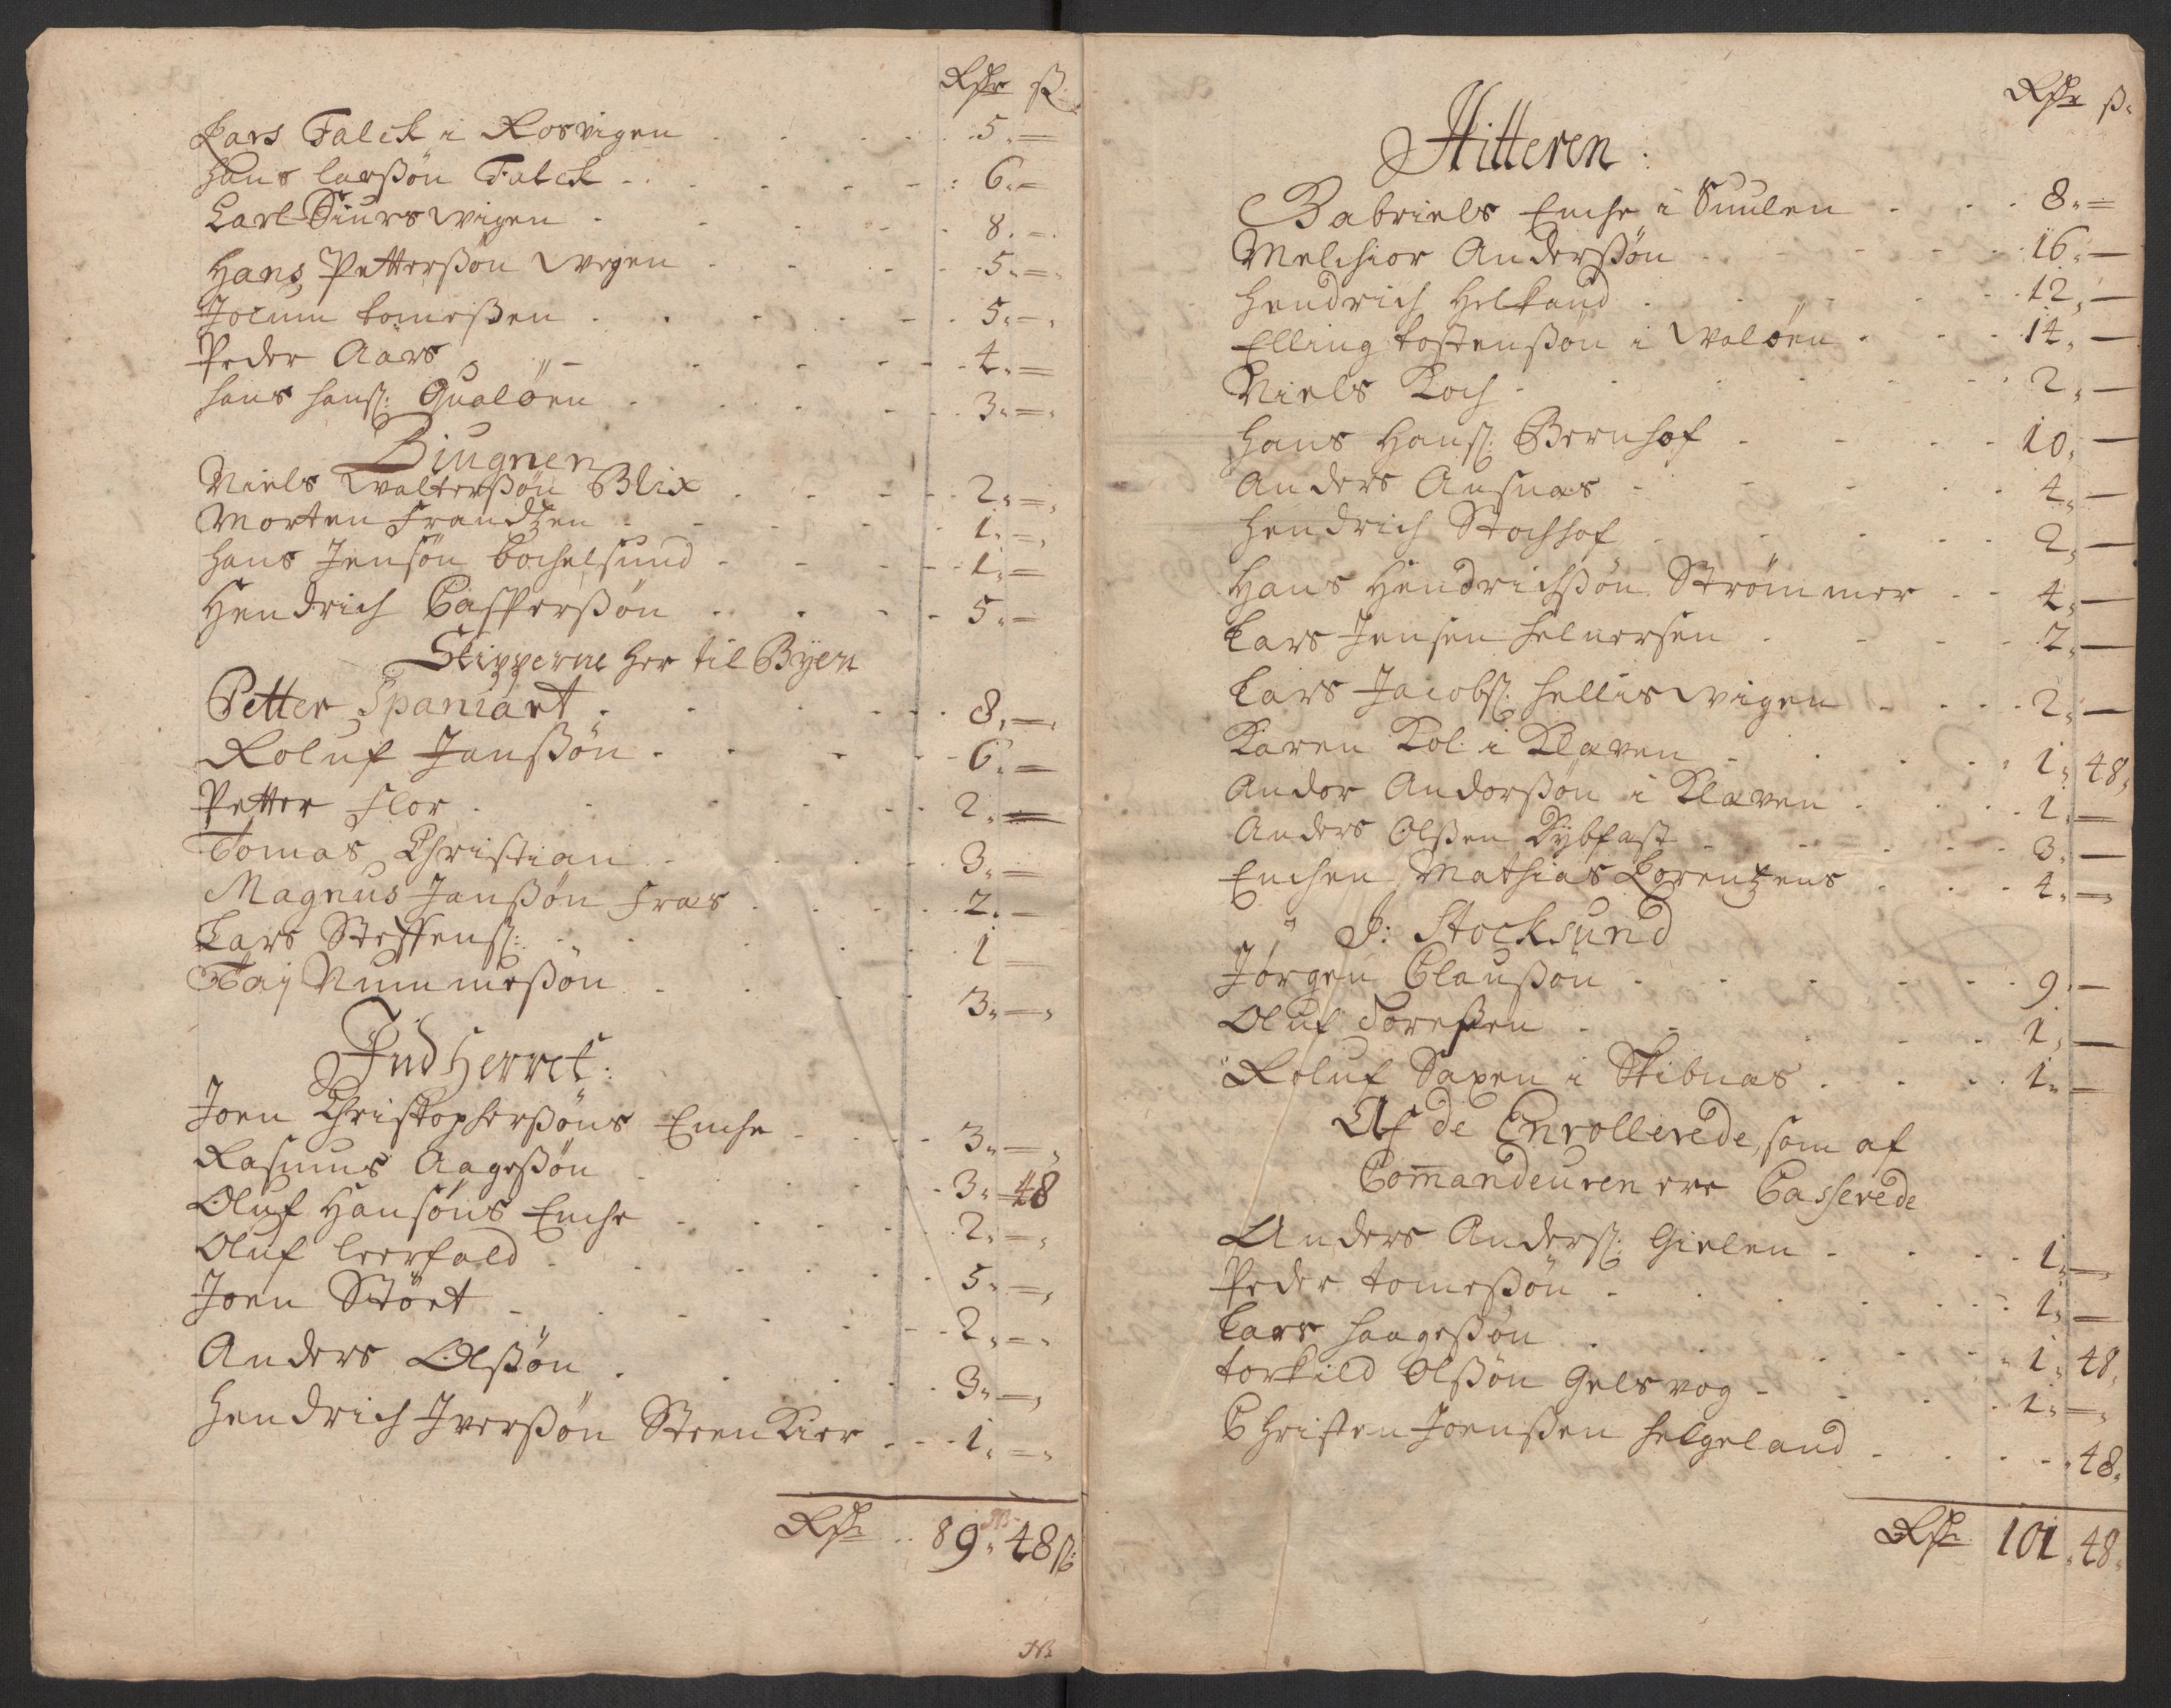 Rdr ß
Lars Falck i Rosvigen 5 " —
Hans larßøn Falck 6 " —
Carl Siurs wigen 8 " —
Hans Petterßøn wigen 5 " —
Jocum tomeßen 5 " —
Peder Aars 4 " —
Hans Hanß: Qualøen 3 " —
Biugnen
Niels Walterßøn Blix 2 " —
Morten Frandzen 1 " —
Hans Jensøn Cochelsund 1 " —
Hendrich Casperßøn 5 " —
Skipperne her til Byen
Petter Spaniart 8 " —
Roluf Janßøn 6 " —
Petter Flor 2 " —
Tomas Christian 3 " —
Magnus Janßøn Fras 2 " —
Lars Steffenß: 1 —
Taj Nummeßøn 3 " —
Ind Herret:
Joen Christopherßøns Enche 3 " —
Rasmus Aageßøn 3 " 48
Oluf Hansøns Enche 2 " —
Oluf leerfald 5 " —
Joen Stört 2 " —
Anders Olßøn 3 " —
Hendrich Iverßøn Steenkier 1 " —
Rdr 89 " 48 ß
NB
Rdr ß
Hitteren:
Gabriels Enche i Suulen 8 " —
Melchior Anderßøn 16 " —
Hendrich Helkand 12 " —
Elling tostenßøn i Waløen 14 " —
Niels Koch 2 " —
Hans Hanß: Bernhof 10 " —
Anders Ausnas 4 " —
Hendrich Stochhof 2 " —
Hans Hendrichßøn Strømmer 4 " —
Lars Jensen Heluersen 2 " —
Lars Jacobß: Hellis wigen 2 " —
Karen Kol i Klaven 1 " 48
Ander Anderßøn i Klaven 1 " —
Anders Olßen Dybfast 3 " —
Enchen Mathias Lorentzens 4 " —
I: Stocksund
Jørgen Claußøn 9 " —
Oluf Toreßen 1 " —
Roluf Saxen i Skibnas 1 " —
Af de Enrollerede, som af
Comandeuren ere Casserede
Anders Anderß: Gielen 1 " —
Peder tomeßøn 1 " —
Lars Haageßøn 1 " 48
torkild Olßøn Gelsvog 1 " —
Christen Joenßen Helgeland 48
Rdr 101 " 48